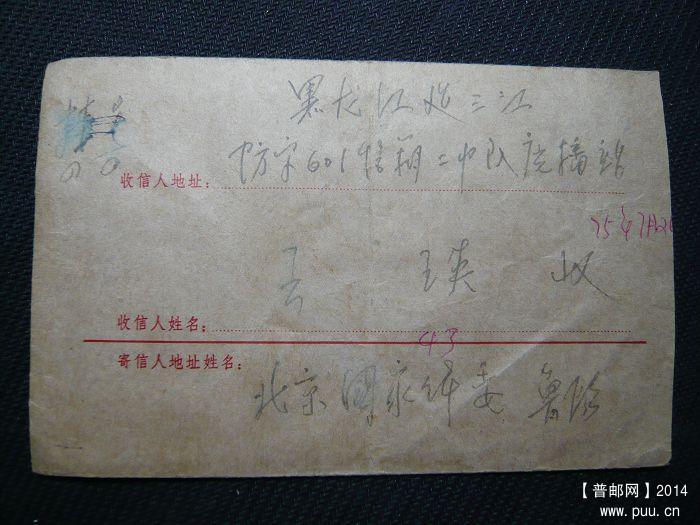 黑龙江建三江
601信箱二中队广播站
收信人地址：
75年7月26
王 瑛 收
收信人姓名：
43
寄信人地址姓名：
北京国家计委 鲁
【普邮网】2014
www.puu.cn